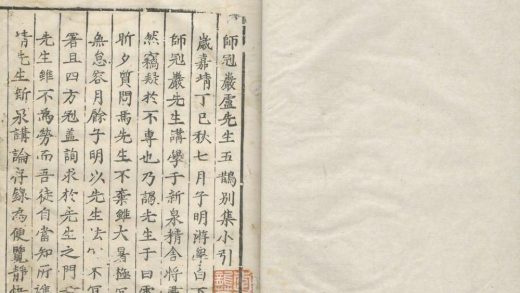 師冠巖盧先生五鵲別集小引
歲嘉靖丁巳秋七月子明將舉白下
師冠巖先生講學于新泉精舍將
然竊疑於不專也乃謁先生子曰
昕夕質問焉先生不棄雖大暑極
無怠容月餘子明以先生 不
署且四方冠蓋詢求於先生之門
先生雖不為勞而吾徒自當知所
請先生 錄為便覽靜